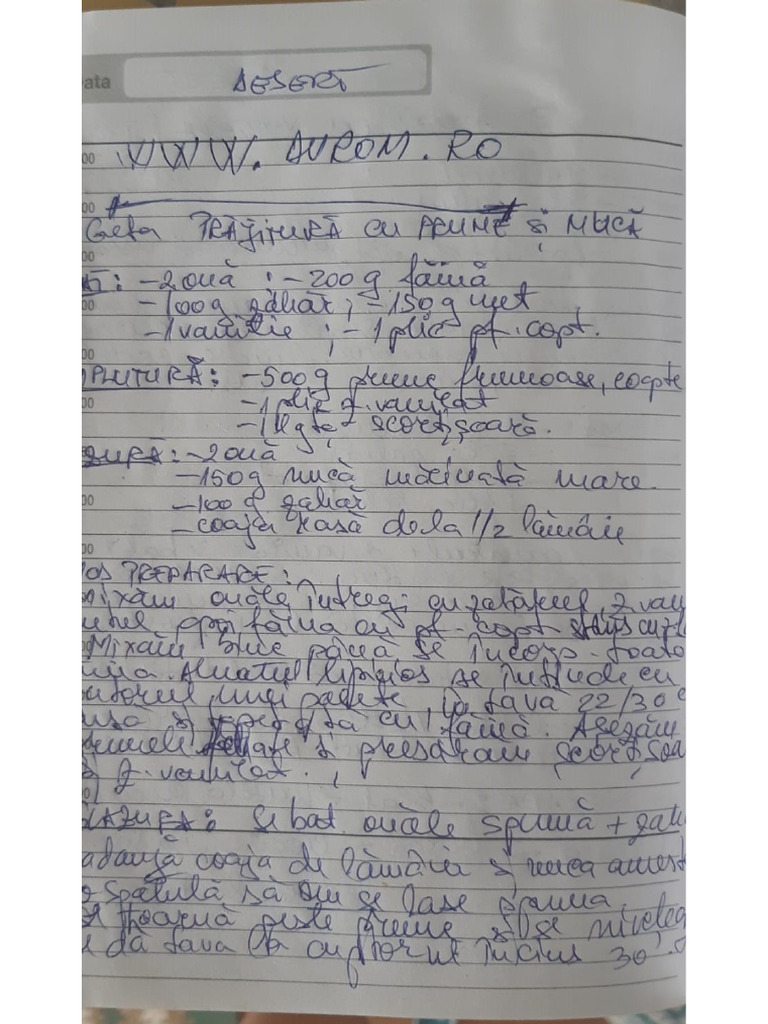 ata
DESERT
WWW.AUROM.RO
Geta PRĂJITURĂ CU PRUNE și NUCĂ
: -2 ouă ; -200 g făină
-100g zahăr ; -150g unt
-1 vanilie ; -1 plic pf. copt.
PLUTURĂ: -500g prune frumoase, coapte
-1 plic z. vanilat
-1 lgță scorțișoară.
ZURĂ: -2 ouă
-150g nucă măcinată mare.
-100 g zahăr
-coaja rasă de la 1/2 lămâie
OS PREPARARE:
Mixăm ouăle întregi cu zahărul, z van
untul apoi făina cu pf. copt
Mixăm bine până se încorp. toată
Aluatul lipicios se întinde cu
unei palete, în tava 22/30 c
unsă și cu făină. Așezăm
prunele și presărăm scorțișoa
și z. vanilat.
LAZURA: Se bat ouăle spumă + zah
adaugă coaja de lămâie și nuca amest
o spatulă să nu se lase spuma
toarnă peste prune și se nivelea
dă tava la cuptorul încins 30